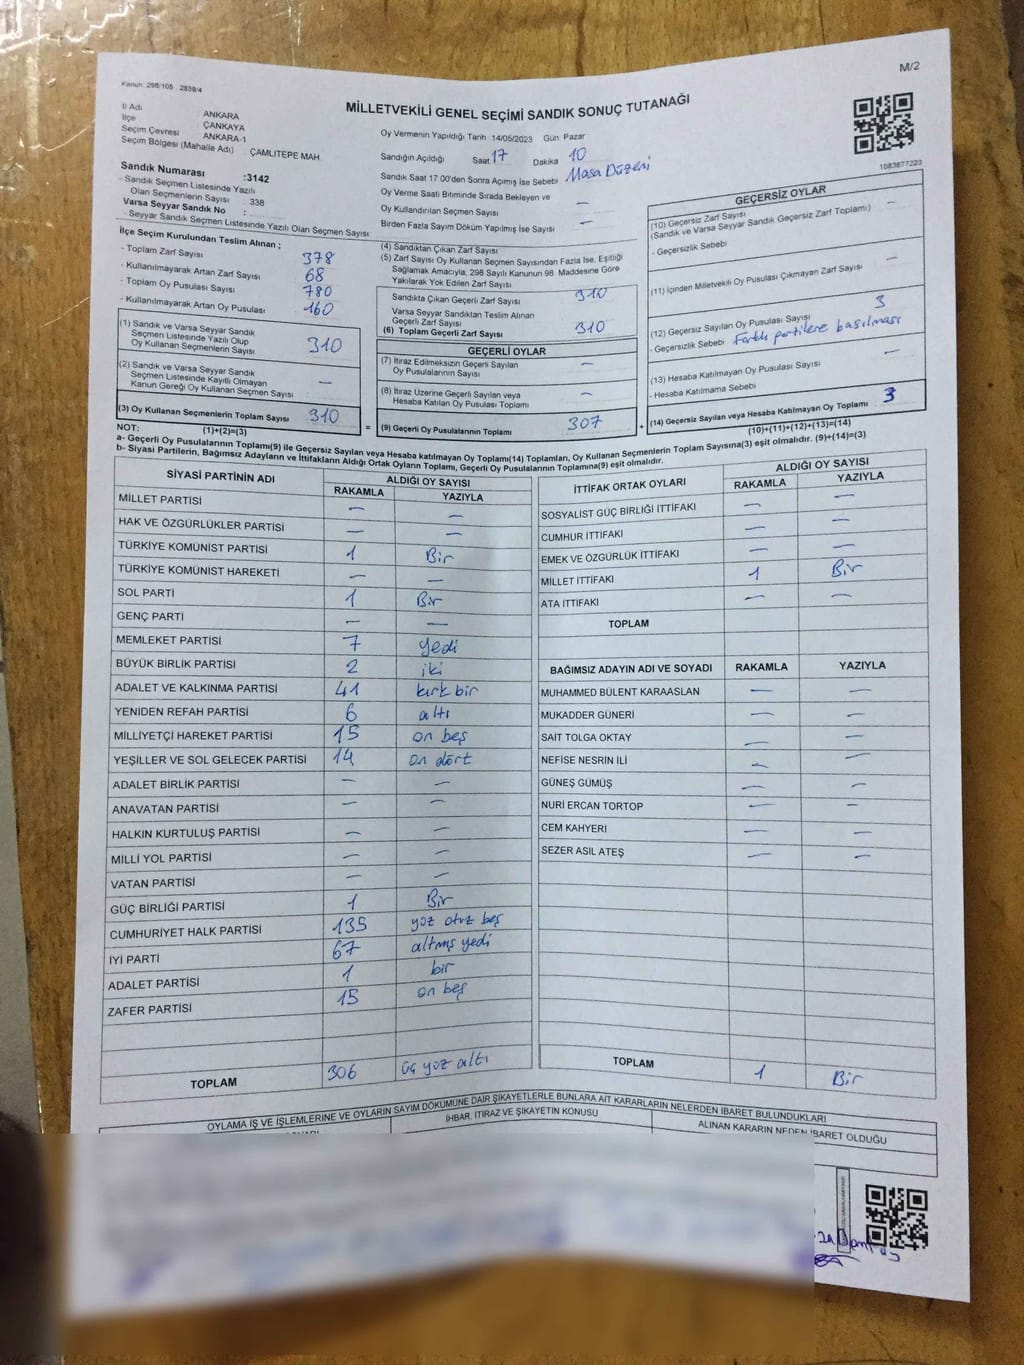 M/2
Kanun: 298/105 2839/4
MİLLETVEKİLİ GENEL SEÇİMİ SANDIK SONUÇ TUTANAĞI
İl Adı ANKARA
İlçe ÇANKAYA
Seçim Çevresi ANKARA-1
Seçim Bölgesi (Mahalle Adı) ÇAMLITEPE MAH.
Sandık Numarası :3142
- Sandık Seçmen Listesinde Yazılı
Olan Seçmenlerin Sayısı 338
Varsa Seyyar Sandık No :
- Seyyar Sandık Seçmen Listesinde Yazılı Olan Seçmen Sayısı
Oy Vermenin Yapıldığı Tarih 14/05/2023 Gün Pazar
Sandığın Açıldığı Saat 17 Dakika 10
Sandık Saat 17.00'den Sonra Açımış İse Sebebi Masa Düzeni
Oy Verme Saati Bitiminde Sırada Bekleyen ve
Oy Kullandırılan Seçmen Sayısı —
Birden Fazla Sayım Döküm Yapılmış İse Sayısı —
1083677223
İlçe Seçim Kurulundan Teslim Alınan ;
- Toplam Zarf Sayısı 378
- Kullanılmayarak Artan Zarf Sayısı 68
- Toplam Oy Pusulası Sayısı 780
- Kullanılmayarak Artan Oy Pusulası 160
(1) Sandık ve Varsa Seyyar Sandık
Seçmen Listesinde Yazılı Olup
Oy Kullanan Seçmenlerin Sayısı 310
(2) Sandık ve Varsa Seyyar Sandık
Seçmen Listesinde Kayıtlı Olmayan
Kanun Gereği Oy Kullanan Seçmen Sayısı —
(3) Oy Kullanan Seçmenlerin Toplam Sayısı 310
(1)+(2)=(3)
(4) Sandıktan Çıkan Zarf Sayısı
(5) Zarf Sayısı Oy Kullanan Seçmen Sayısından Fazla İse, Eşitliği
Sağlamak Amacıyla, 298 Sayılı Kanunun 98. Maddesine Göre
Yakılarak Yok Edilen Zarf Sayısı
Sandıkta Çıkan Geçerli Zarf Sayısı 310
Varsa Seyyar Sandıktan Teslim Alınan
Geçerli Zarf Sayısı
(6) Toplam Geçerli Zarf Sayısı 310
GEÇERLİ OYLAR
(7) İtiraz Edilmeksizin Geçerli Sayılan
Oy Pusulalarının Sayısı —
(8) İtiraz Üzerine Geçerli Sayılan veya
Hesaba Katılan Oy Pusulası Toplamı —
= (9) Geçerli Oy Pusulalarının Toplamı 307 +
GEÇERSİZ OYLAR
(10) Geçersiz Zarf Sayısı
(Sandık ve Varsa Seyyar Sandık Geçersiz Zarf Toplamı) —
- Geçersizlik Sebebi
(11) İçinden Milletvekili Oy Pusulası Çıkmayan Zarf Sayısı —
(12) Geçersiz Sayılan Oy Pusulası Sayısı 3
- Geçersizlik Sebebi Farklı partilere basılması
(13) Hesaba Katılmayan Oy Pusulası Sayısı —
- Hesaba Katılmama Sebebi
(14) Geçersiz Sayılan veya Hesaba Katılmayan Oy Toplamı 3
(10)+(11)+(12)+(13)=(14)
NOT:
a- Geçerli Oy Pusulalarının Toplamı(9) ile Geçersiz Sayılan veya Hesaba katılmayan Oy Toplamı(14) Toplamları, Oy Kullanan Seçmenlerin Toplam Sayısına(3) eşit olmalıdır. (9)+(14)=(3)
b- Siyasi Partilerin, Bağımsız Adayların ve İttifakların Aldığı Ortak Oyların Toplamı, Geçerli Oy Pusulalarının Toplamına(9) eşit olmalıdır.
SİYASİ PARTİNİN ADI ALDIĞI OY SAYISI
RAKAMLA YAZIYLA
MİLLET PARTİSİ — —
HAK VE ÖZGÜRLÜKLER PARTİSİ — —
TÜRKİYE KOMÜNİST PARTİSİ 1 Bir
TÜRKİYE KOMÜNİST HAREKETİ — —
SOL PARTİ 1 Bir
GENÇ PARTİ — —
MEMLEKET PARTİSİ 7 yedi
BÜYÜK BİRLİK PARTİSİ 2 iki
ADALET VE KALKINMA PARTİSİ 41 kırk bir
YENİDEN REFAH PARTİSİ 6 altı
MİLLİYETÇİ HAREKET PARTİSİ 15 on beş
YEŞİLLER VE SOL GELECEK PARTİSİ 14 on dört
ADALET BİRLİK PARTİSİ — —
ANAVATAN PARTİSİ — —
HALKIN KURTULUŞ PARTİSİ — —
MİLLİ YOL PARTİSİ — —
VATAN PARTİSİ — —
GÜÇ BİRLİĞİ PARTİSİ 1 Bir
CUMHURİYET HALK PARTİSİ 135 yüz otuz beş
İYİ PARTİ 67 altmış yedi
ADALET PARTİSİ 1 bir
ZAFER PARTİSİ 15 on beş
TOPLAM 306 üç yüz altı
İTTİFAK ORTAK OYLARI ALDIĞI OY SAYISI
RAKAMLA YAZIYLA
SOSYALİST GÜÇ BİRLİĞİ İTTİFAKI — —
CUMHUR İTTİFAKI — —
EMEK VE ÖZGÜRLÜK İTTİFAKI — —
MİLLET İTTİFAKI 1 Bir
ATA İTTİFAKI — —
TOPLAM
BAĞIMSIZ ADAYIN ADI VE SOYADI RAKAMLA YAZIYLA
MUHAMMED BÜLENT KARAASLAN — —
MUKADDER GÜNERİ — —
SAİT TOLGA OKTAY — —
NEFİSE NESRİN İLİ — —
GÜNEŞ GÜMÜŞ — —
NURİ ERCAN TORTOP — —
CEM KAHYERİ — —
SEZER ASİL ATEŞ — —
TOPLAM 1 Bir
OYLAMA İŞ VE İŞLEMLERİNE VE OYLARIN SAYIM DÖKÜMÜNE DAİR ŞİKAYETLERLE BUNLARA AİT KARARLARIN NELERDEN İBARET BULUNDUKLARI
İHBAR, İTİRAZ VE ŞİKAYETİN KONUSU
ALINAN KARARIN NEDEN İBARET OLDUĞU